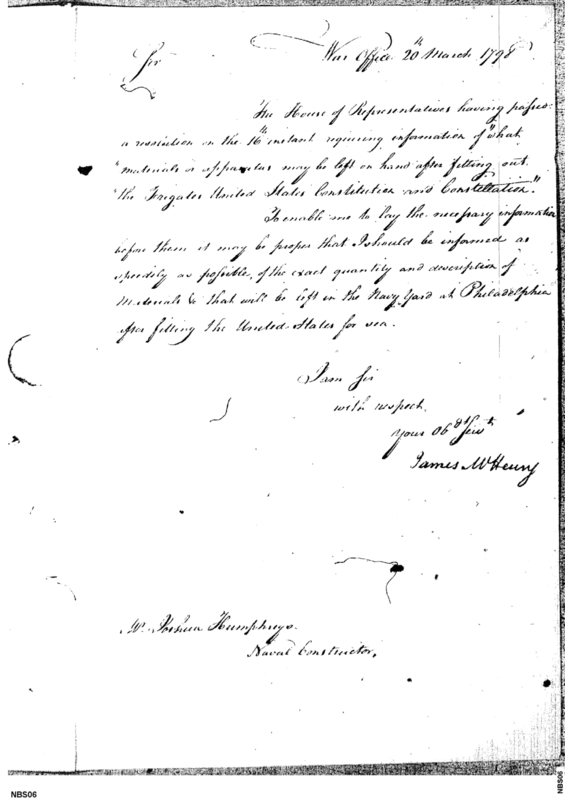 War Office 20th March 1798
Sir
The House of Representatives having passed
a resolution on the 16th instant requiring information of "what
"materials or apparatus may be left on hand after fitting out
"the Frigates United States Constitution and Constellation."
To enable me to lay the necessary information
before them it may be proper that I should be informed as
speedily as possible, of the exact quantity and description of
Materials & that will be left in the Navy Yard at Philadelphia
after fitting the United States for sea.
I am Sir
with respect
your Obdt Servt
James McHenry
Mr. Joshua Humphreys.
Naval Constructor.
NBS06
NBS06